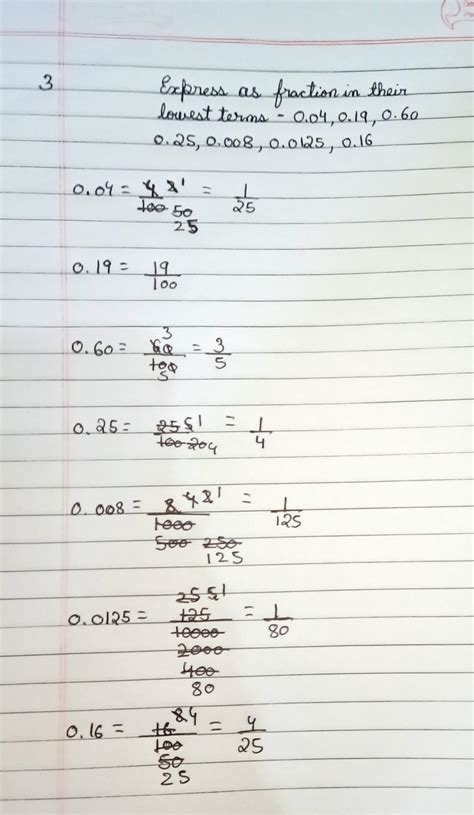 3 Express as fraction in their
lowest terms - 0.04, 0.19, 0.60
0.25, 0.008, 0.0125, 0.16
0.04 = 4 2 1 / 100 50 25 = 1/25
0.19 = 19/100
0.60 = 60 3 / 100 5 = 3/5
0.25 = 25 5 1 / 100 20 4 = 1/4
0.008 = 8 4 2 1 / 1000 500 250 125 = 1/125
0.0125 = 125 25 5 1 / 10000 2000 400 80 = 1/80
0.16 = 16 8 4 / 100 50 25 = 4/25